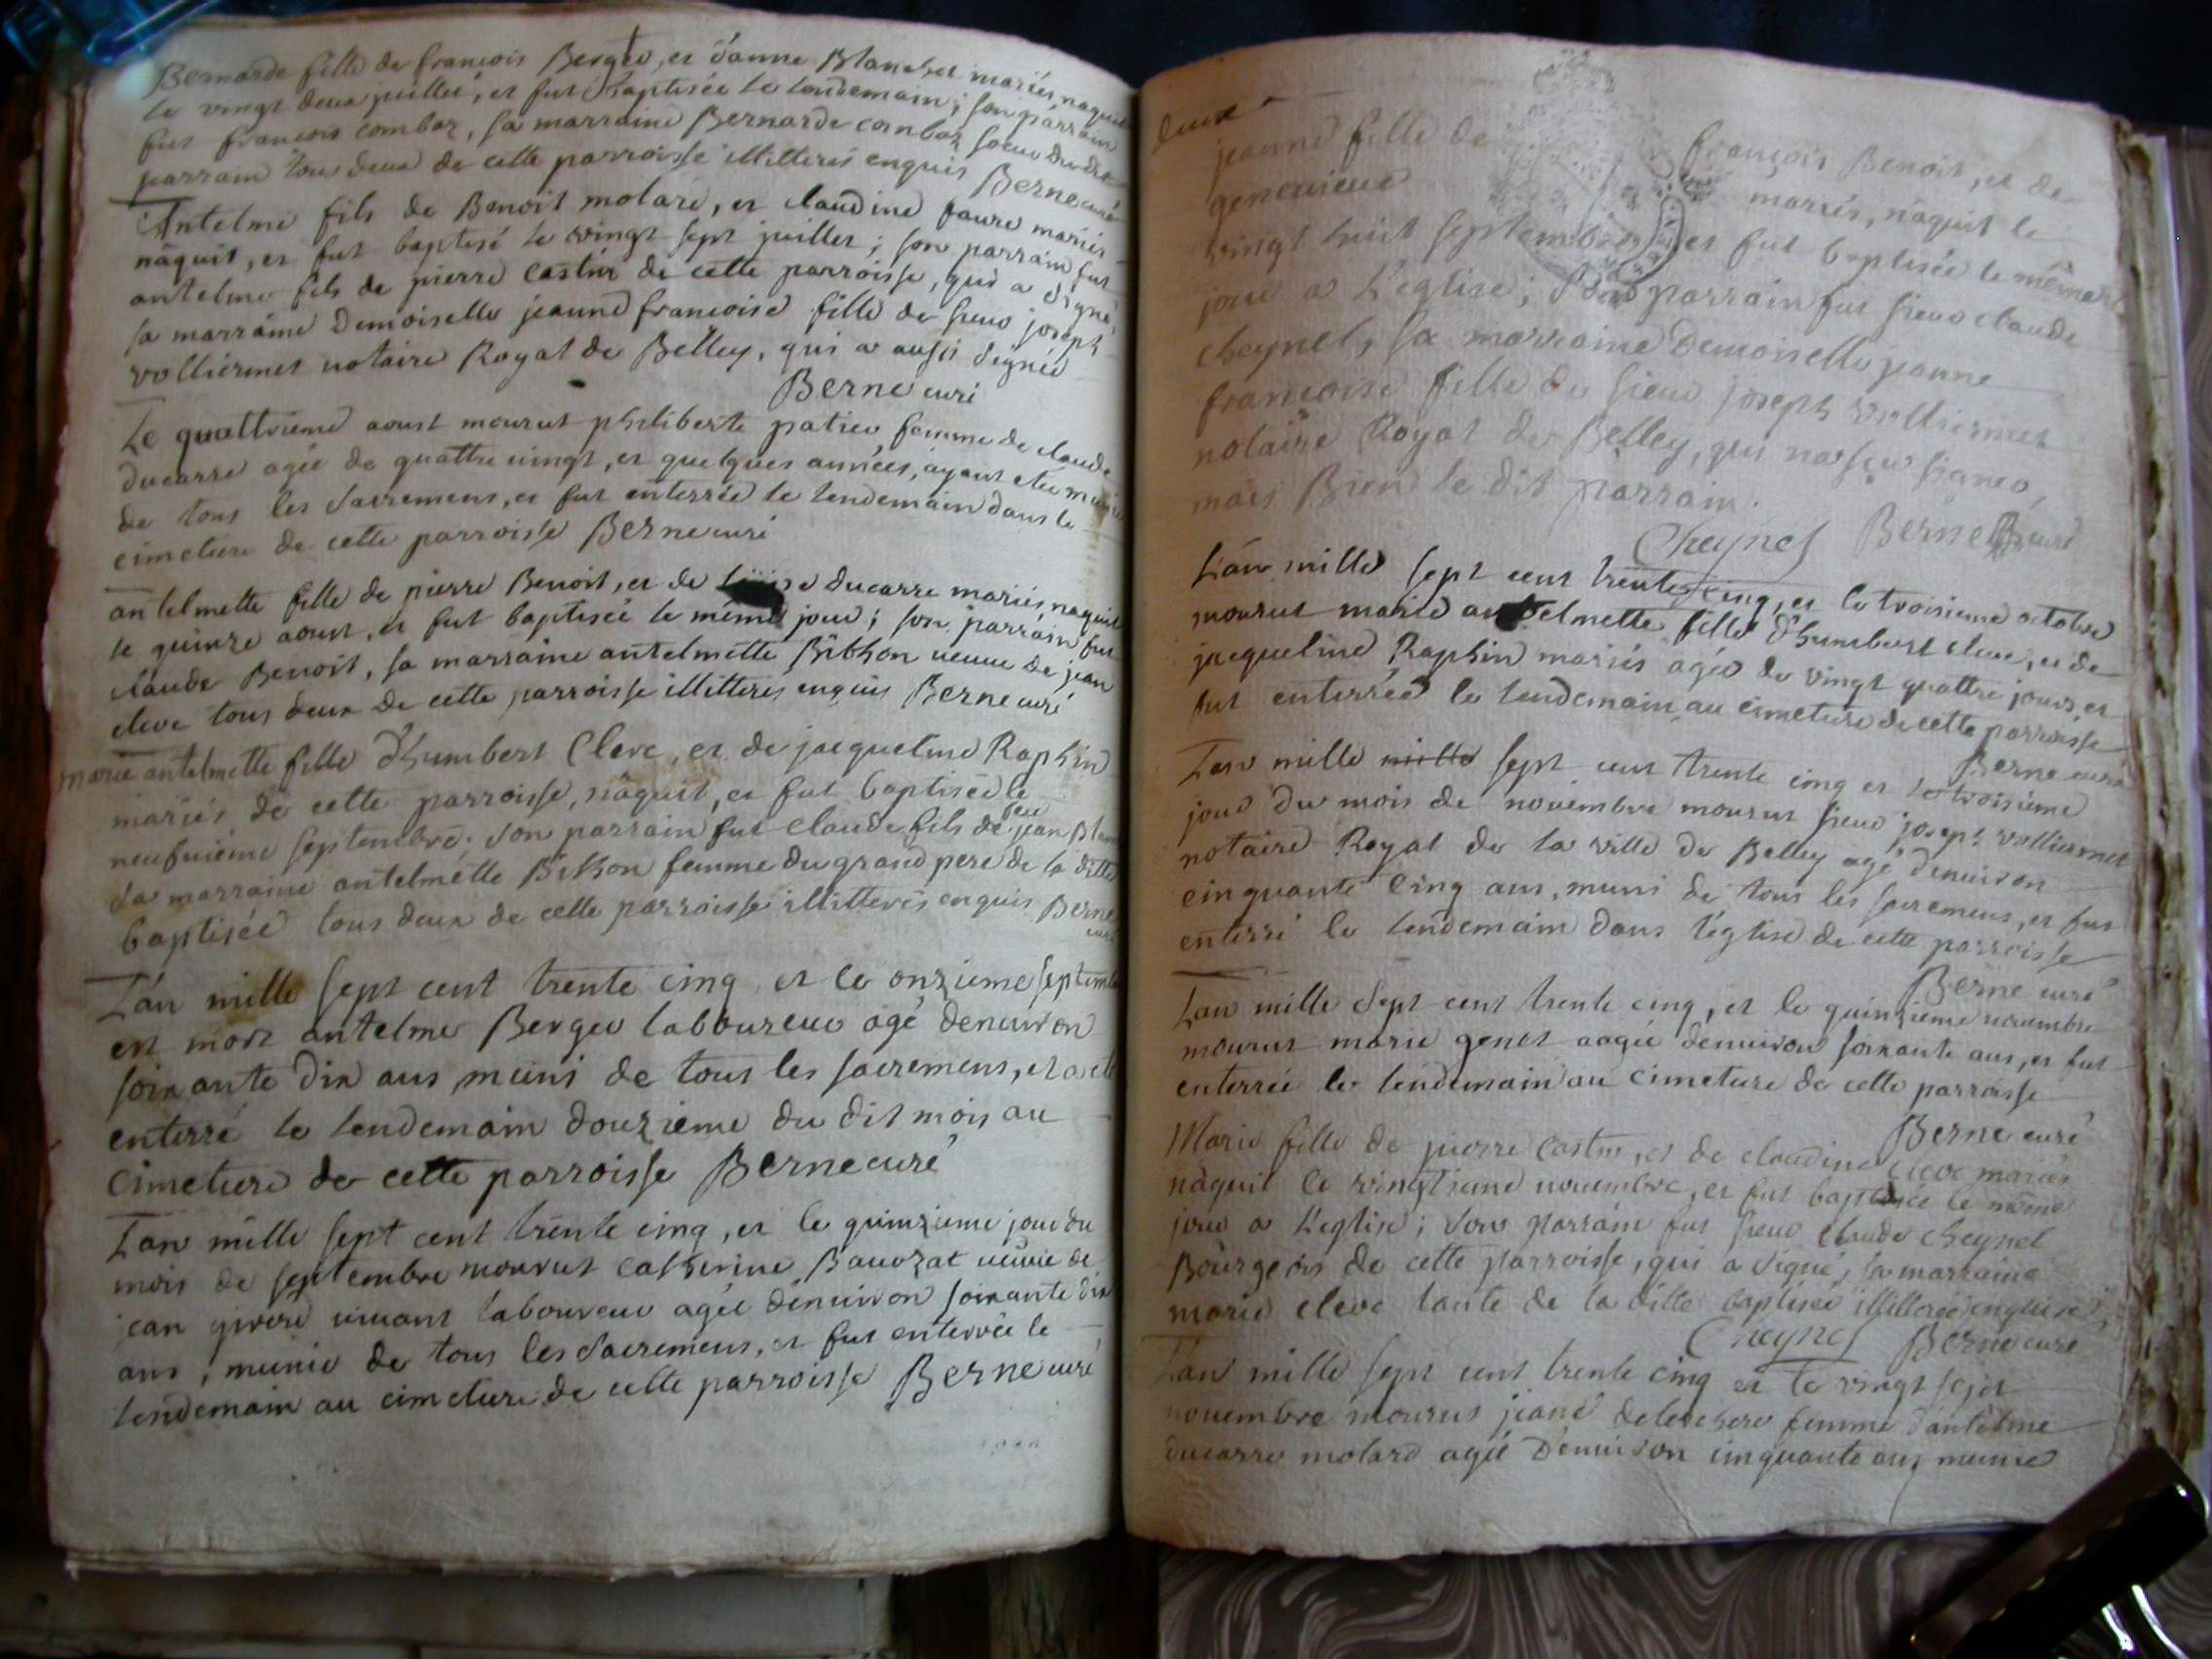 Bernarde fille de françois Berger, et d'anne Blanchet mariés, naquit
le vingt deux juillet, et fut baptisée le lendemain; son parrain
fut françois combaz, sa marraine Bernarde combaz soeur du dit
parrain tous deux de cette parroisse illitterés enquis Berne curé
Antelme fils de Benoit molard, et claudine faure mariés
nâquit, et fut baptisé le vingt sept juillet; son parrain fut
antelme fils de pierre castin de cette parroisse, qui a signé,
sa marraine Demoiselle jeanne françoise fille de sieur joseph
volliermet notaire Royal de Belley, qui a aussi signée
Berne curé
Le quattrieme aoust mourut philiberte patier femme de claude
ducarre agée de quattre vingt, et quelques années, ayant eté munie
de tous les sacremens, et fut enterrée le lendemain dans le
cimetiere de cette parroisse Berne curé
antelmette fille de pierre Benoit, et de ducarre mariés, naquit
le quinze aoust, et fut baptisée le même jour; son parrain fut
claude Benoit, sa marraine antelmette Bithon veuve de jean
cleve tous deux de cette parroisse illitteres enquis Berne curé
marie antelmette fille d'humbert Cleve, et de jacqueline Raphin
mariés de cette parroisse, nâquit, et fut baptisée le
neufvième septembre; son parrain fut claude fils de feu jean
sa marraine antelmette Bithon femme du grand pere de la ditte
baptisée tous deux de cette parroisse illitterés enquis Berne
curé
L'an mille sept cent trente cinq et le onzieme septembre
est mort antelme Berger laboureur agé d'environ
soixante dix ans muni de tous les sacremens, et a eté
enterré le lendemain douzieme du dit mois au
cimetiere de cette parroisse Berne curé
L'an mille sept cent trente cinq, et le quinzieme jour du
mois de septembre mourut catherine Bauozat veuve de
jean vivant laboureur agée d'environ soixante dix
ans, munie de tous les sacremens, et fut enterrée le
lendemain au cimetiere de cette parroisse Berne curé
deux
jeanne fille de françois Benoit, et de
genevieve mariés, naquit le
vingt huit septembre, et fut baptisée le même
jour a L'eglise; son parrain fut sieur claude
cheynel, sa marraine Demoiselle jeanne
françoise fille de sieur joseph volliermet
notaire Royal de Belley, qui na sçu signer,
mais Bien le dit parrain.
Cheynel Berne curé
L'an mille sept cent trente cinq, et le troisieme octobre
mourut marie antelmette fille d'humbert cleve, et de
jacqueline Raphin mariés agée de vingt quattre jours, et
fut enterrée le lendemain au cimetiere de cette parroisse
Berne curé
L'an mille mille sept cent trente cinq et le troisieme
jour du mois de novembre mourut sieur joseph volliermet
notaire Royal de la ville de Belley agé d'environ
cinquante cinq ans, muni de tous les sacremens, et fut
enterré le lendemain dans l'église de cette parroisse
Berne curé
L'an mille sept cent trente cinq, et le quinzieme novembre
mourut marie genet aagée d'environ soixante ans, et fut
enterrée le lendemain au cimetiere de cette parroisse
Berne curé
Marie fille de pierre castin, et de claudine cleve mariés
nâquit le vingtieme novembre, et fut baptisée le même
jour a L'eglise; son parrain fut sieur claude cheynel
Bourgeois de cette parroisse, qui a signé, sa marraine
marie cleve tante de la ditte baptisée illitterée enquise
Cheynel Berne curé
L'an mille sept cent trente cinq et le vingt sept
novembre mourut jeane femme d'antelme
ducarre molard agée d'environ cinquante ans munie